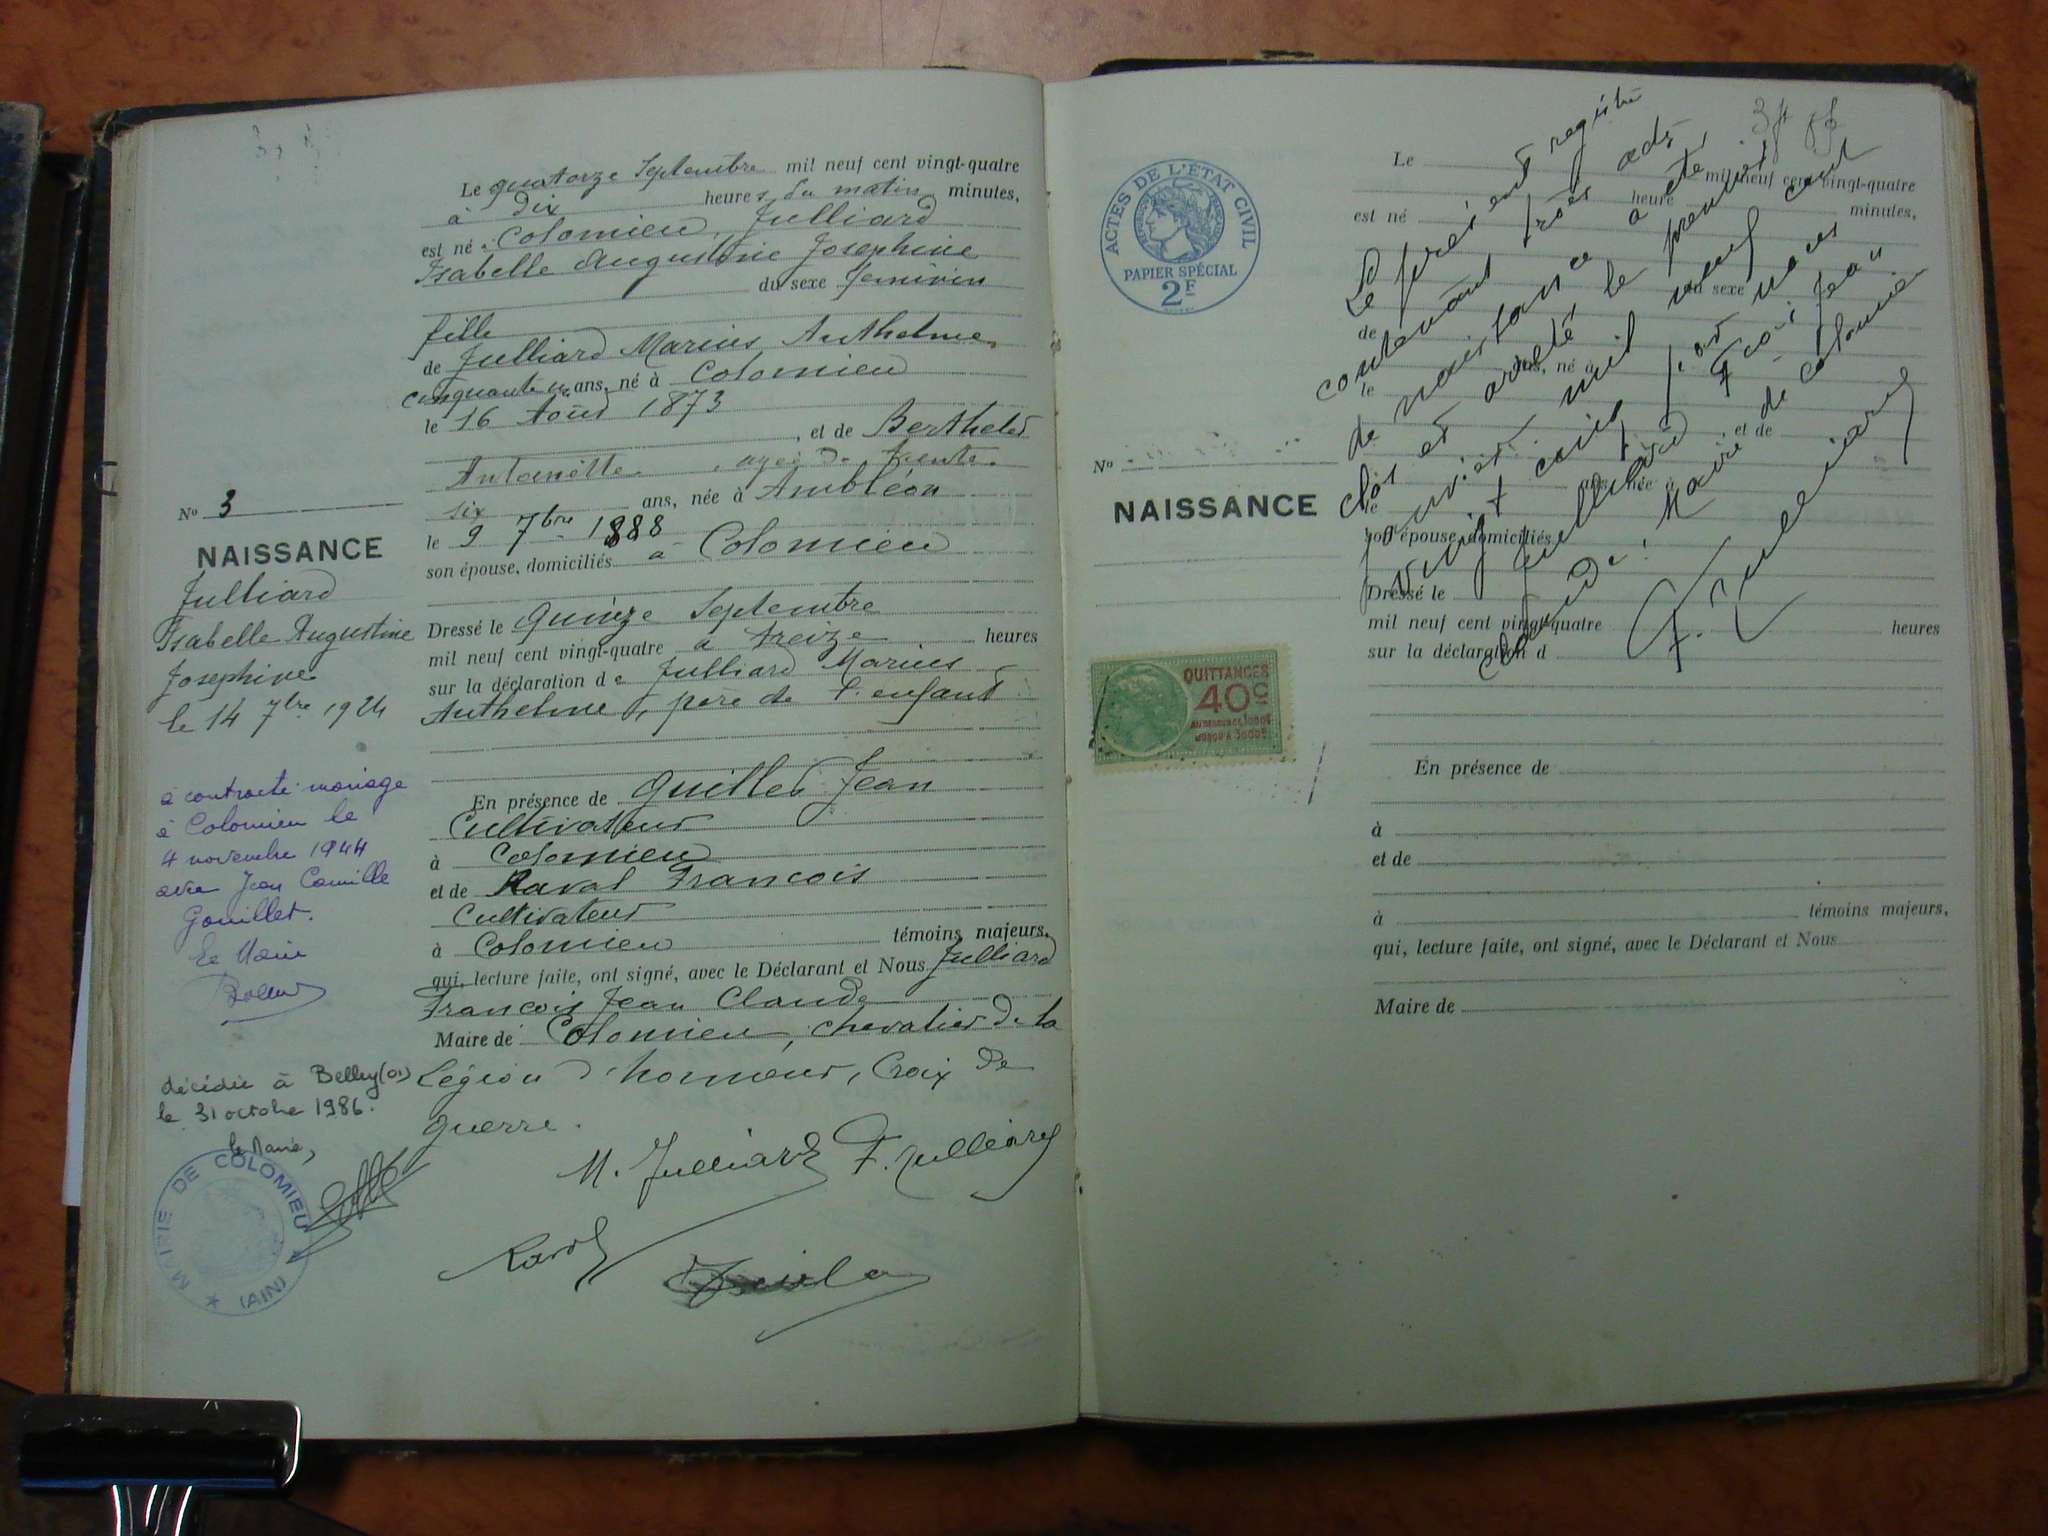 Le quatorze Septembre mil neuf cent vingt-quatre
à dix heures du matin minutes,
est né à Colomieu, Julliard
Isabelle Augustine Josephine
du sexe féminin
fille
de Julliard Marius Anthelme,
cinquante un ans, né à Colomieu
le 16 Août 1873
, et de Berthelet
Antoinette, agée de trente
six ans, née à Ambléon
le 9 7bre 1888
son épouse, domiciliés à Colomieu
Dressé le quinze Septembre
mil neuf cent vingt-quatre à treize heures
sur la déclaration de Julliard Marius
Anthelme, père de l'enfant
En présence de Quillet Jean
Cultivateur
à Colomieu
et de Ravat Francois
Cultivateur
à Colomieu témoins majeurs,
qui, lecture faite, ont signé, avec le Déclarant et Nous Julliard
Francois Jean Claude
Maire de Colomieu, chevalier de la
Légion d'honneur, Croix de
guerre.
M. Julliard F. Julliard
No 3
NAISSANCE
Julliard
Isabelle Augustine
Josephine
le 14 7bre 1924
a contracté mariage
à Colomieu le
4 novembre 1944
avec Jean Camille
Gouillet.
Le Maire
décédée à Belley (01)
le 31 octobre 1986.
le Maire,
MAIRIE DE COLOMIEU
(AIN)
ACTES DE L'ÉTAT CIVIL
PAPIER SPÉCIAL
2F
No
NAISSANCE
QUITTANCES
40c
Le mil neuf cent vingt-quatre
heure minutes,
est né
du sexe
de
ans, né à
le
, et de
ans, née à
le
son épouse, domiciliés
Dressé le
mil neuf cent vingt-quatre heures
sur la déclaration d
En présence de
à
et de
à témoins majeurs,
qui, lecture faite, ont signé, avec le Déclarant et Nous
Maire de
Le présent registre
contenant trois actes
de naissance a été
clos et arrêté le premier
janvier mil neuf cent
vingt cinq par nous
Julliard Jean
Maire de Colomieu
F. Julliard